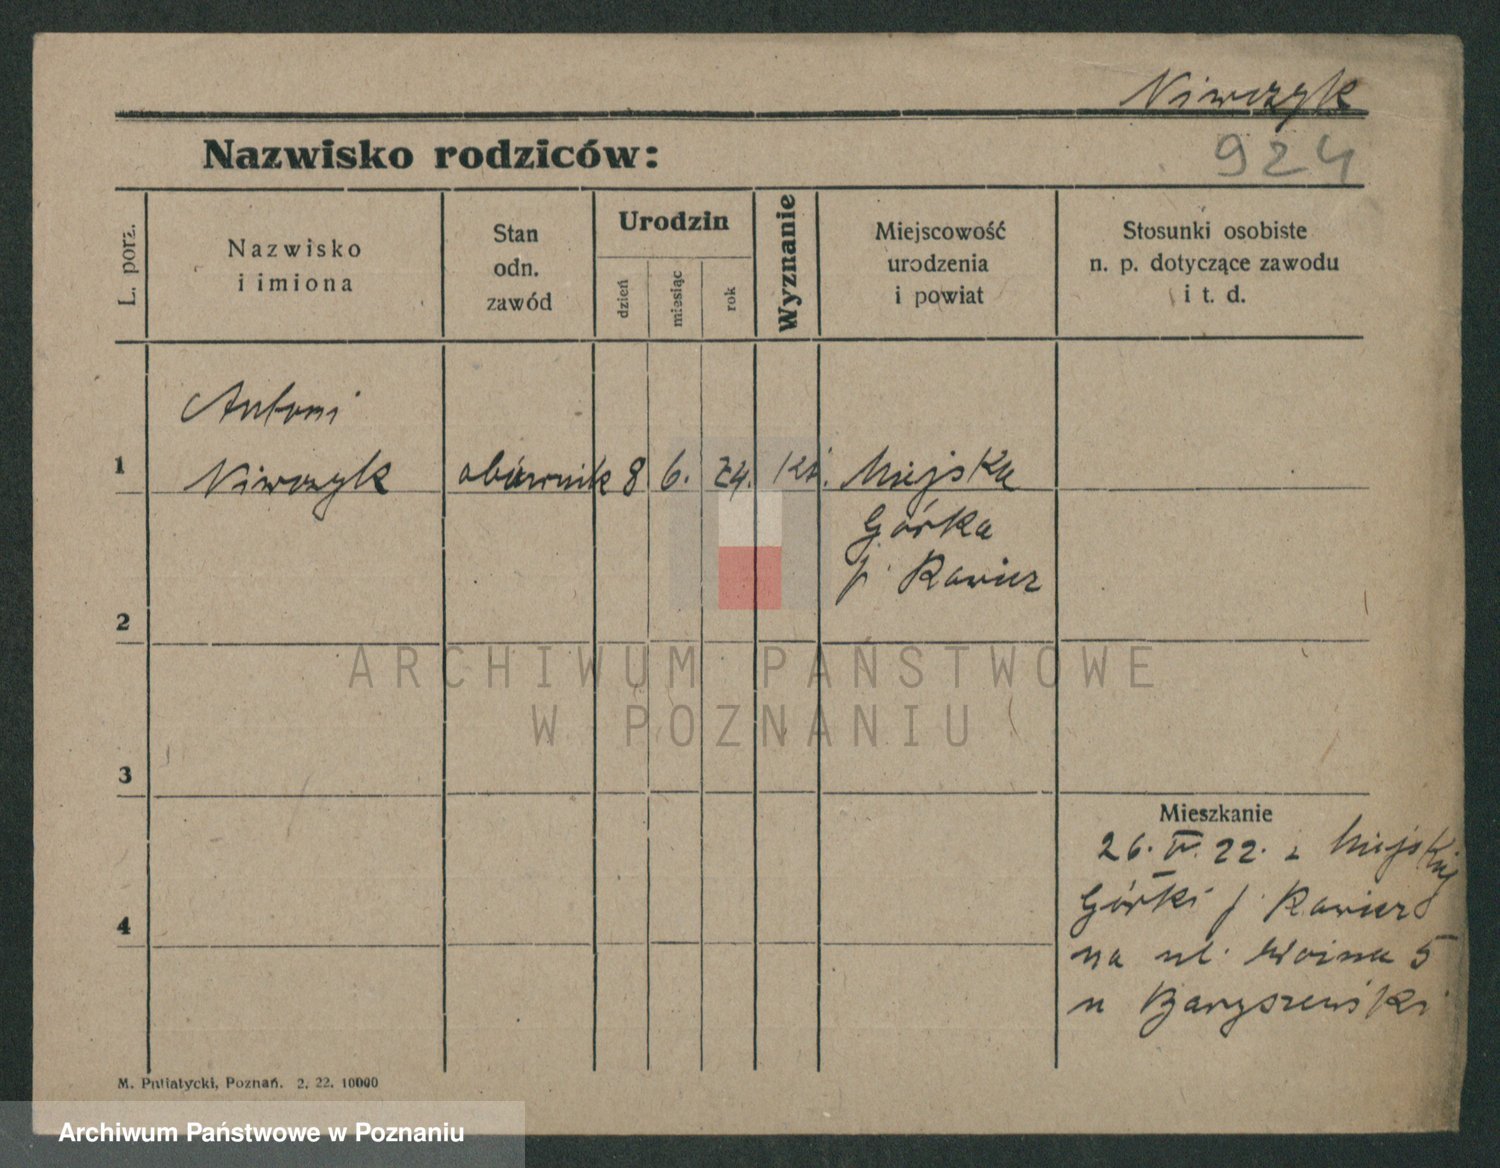 Niwczyk
924
Nazwisko rodziców:
L. porz.
Nazwisko
i imiona
Stan
odn.
zawód
Urodzin
dzień
miesiąc
rok
Wyznanie
Miejscowość
urodzenia
i powiat
Stosunki osobiste
n. p. dotyczące zawodu
i t. d.
Antoni
1 Niwczyk 8 6. 24. kt. Miejska
Górka
p. Rawicz
2
ARCHIWUM PAŃSTWOWE
W POZNANIU
3
Mieszkanie
26. 22. z Miejskiej
4 Górki p. Rawicz
na ul. 5
u Baryszewski
M. Putiatycki, Poznań. 2. 22. 10000
Archiwum Państwowe w Poznaniu